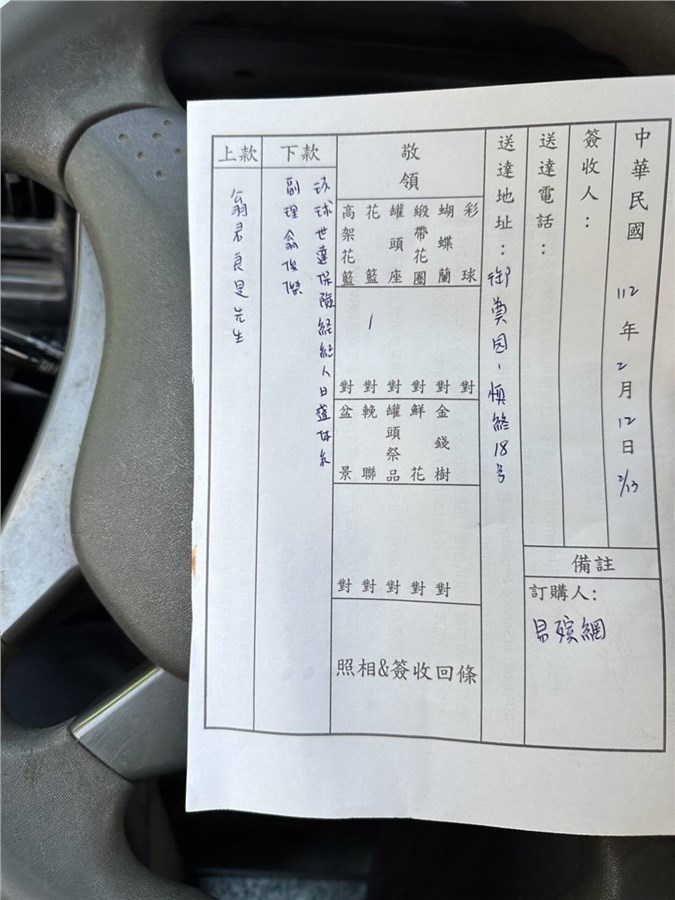 中華民國 112 年 2 月 12 日 2/13
簽收人：
送達電話：
送達地址：御奠園、慎終18号
備註
訂購人:
易殯網
敬領
彩球
蝴蝶蘭
緞帶花圈
罐頭座
花籃
高架花籃
1
對 對 對 對 對 對
金錢樹
鮮花
罐頭祭品
輓聯
盆景
對 對 對 對 對
照相&簽收回條
下款
环球世達保險經紀人日盛
副理翁俊傑
上款
翁君良是先生